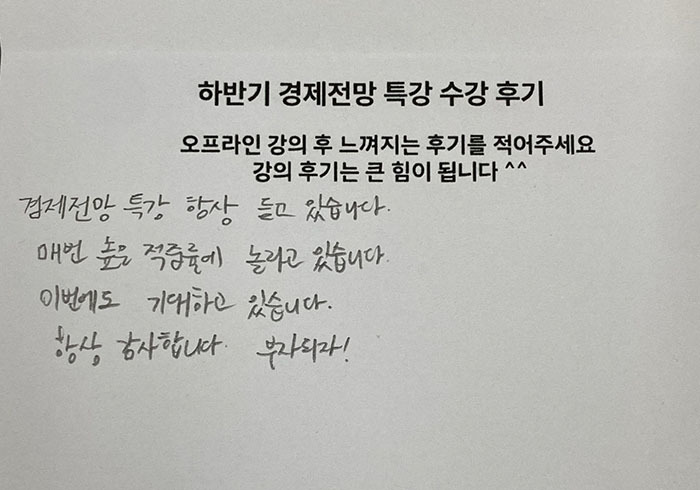 하반기 경제전망 특강 수강 후기
오프라인 강의 후 느껴지는 후기를 적어주세요
강의 후기는 큰 힘이 됩니다 ^^
경제전망 특강 항상 듣고 있습니다.
매번 높은 적중률에 놀라고 있습니다.
이번에도 기대하고 있습니다.
항상 감사합니다. 부자되자!